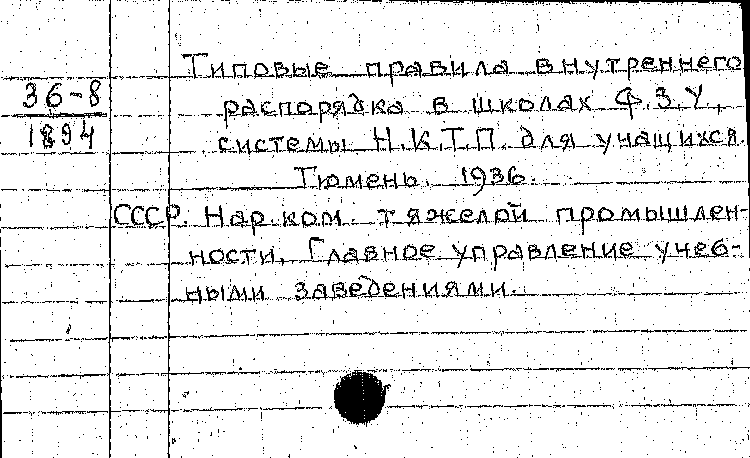 Типовые правила внутреннего
36-8
распорядка в школах Ф.З.У.,
1894
системы Н.К.Т.П. для учащихся.
Тюмень. 1936.
СССР. Нар.ком. тяжелой промышлен-
ности. Главное управление учеб-
ными заведениями.